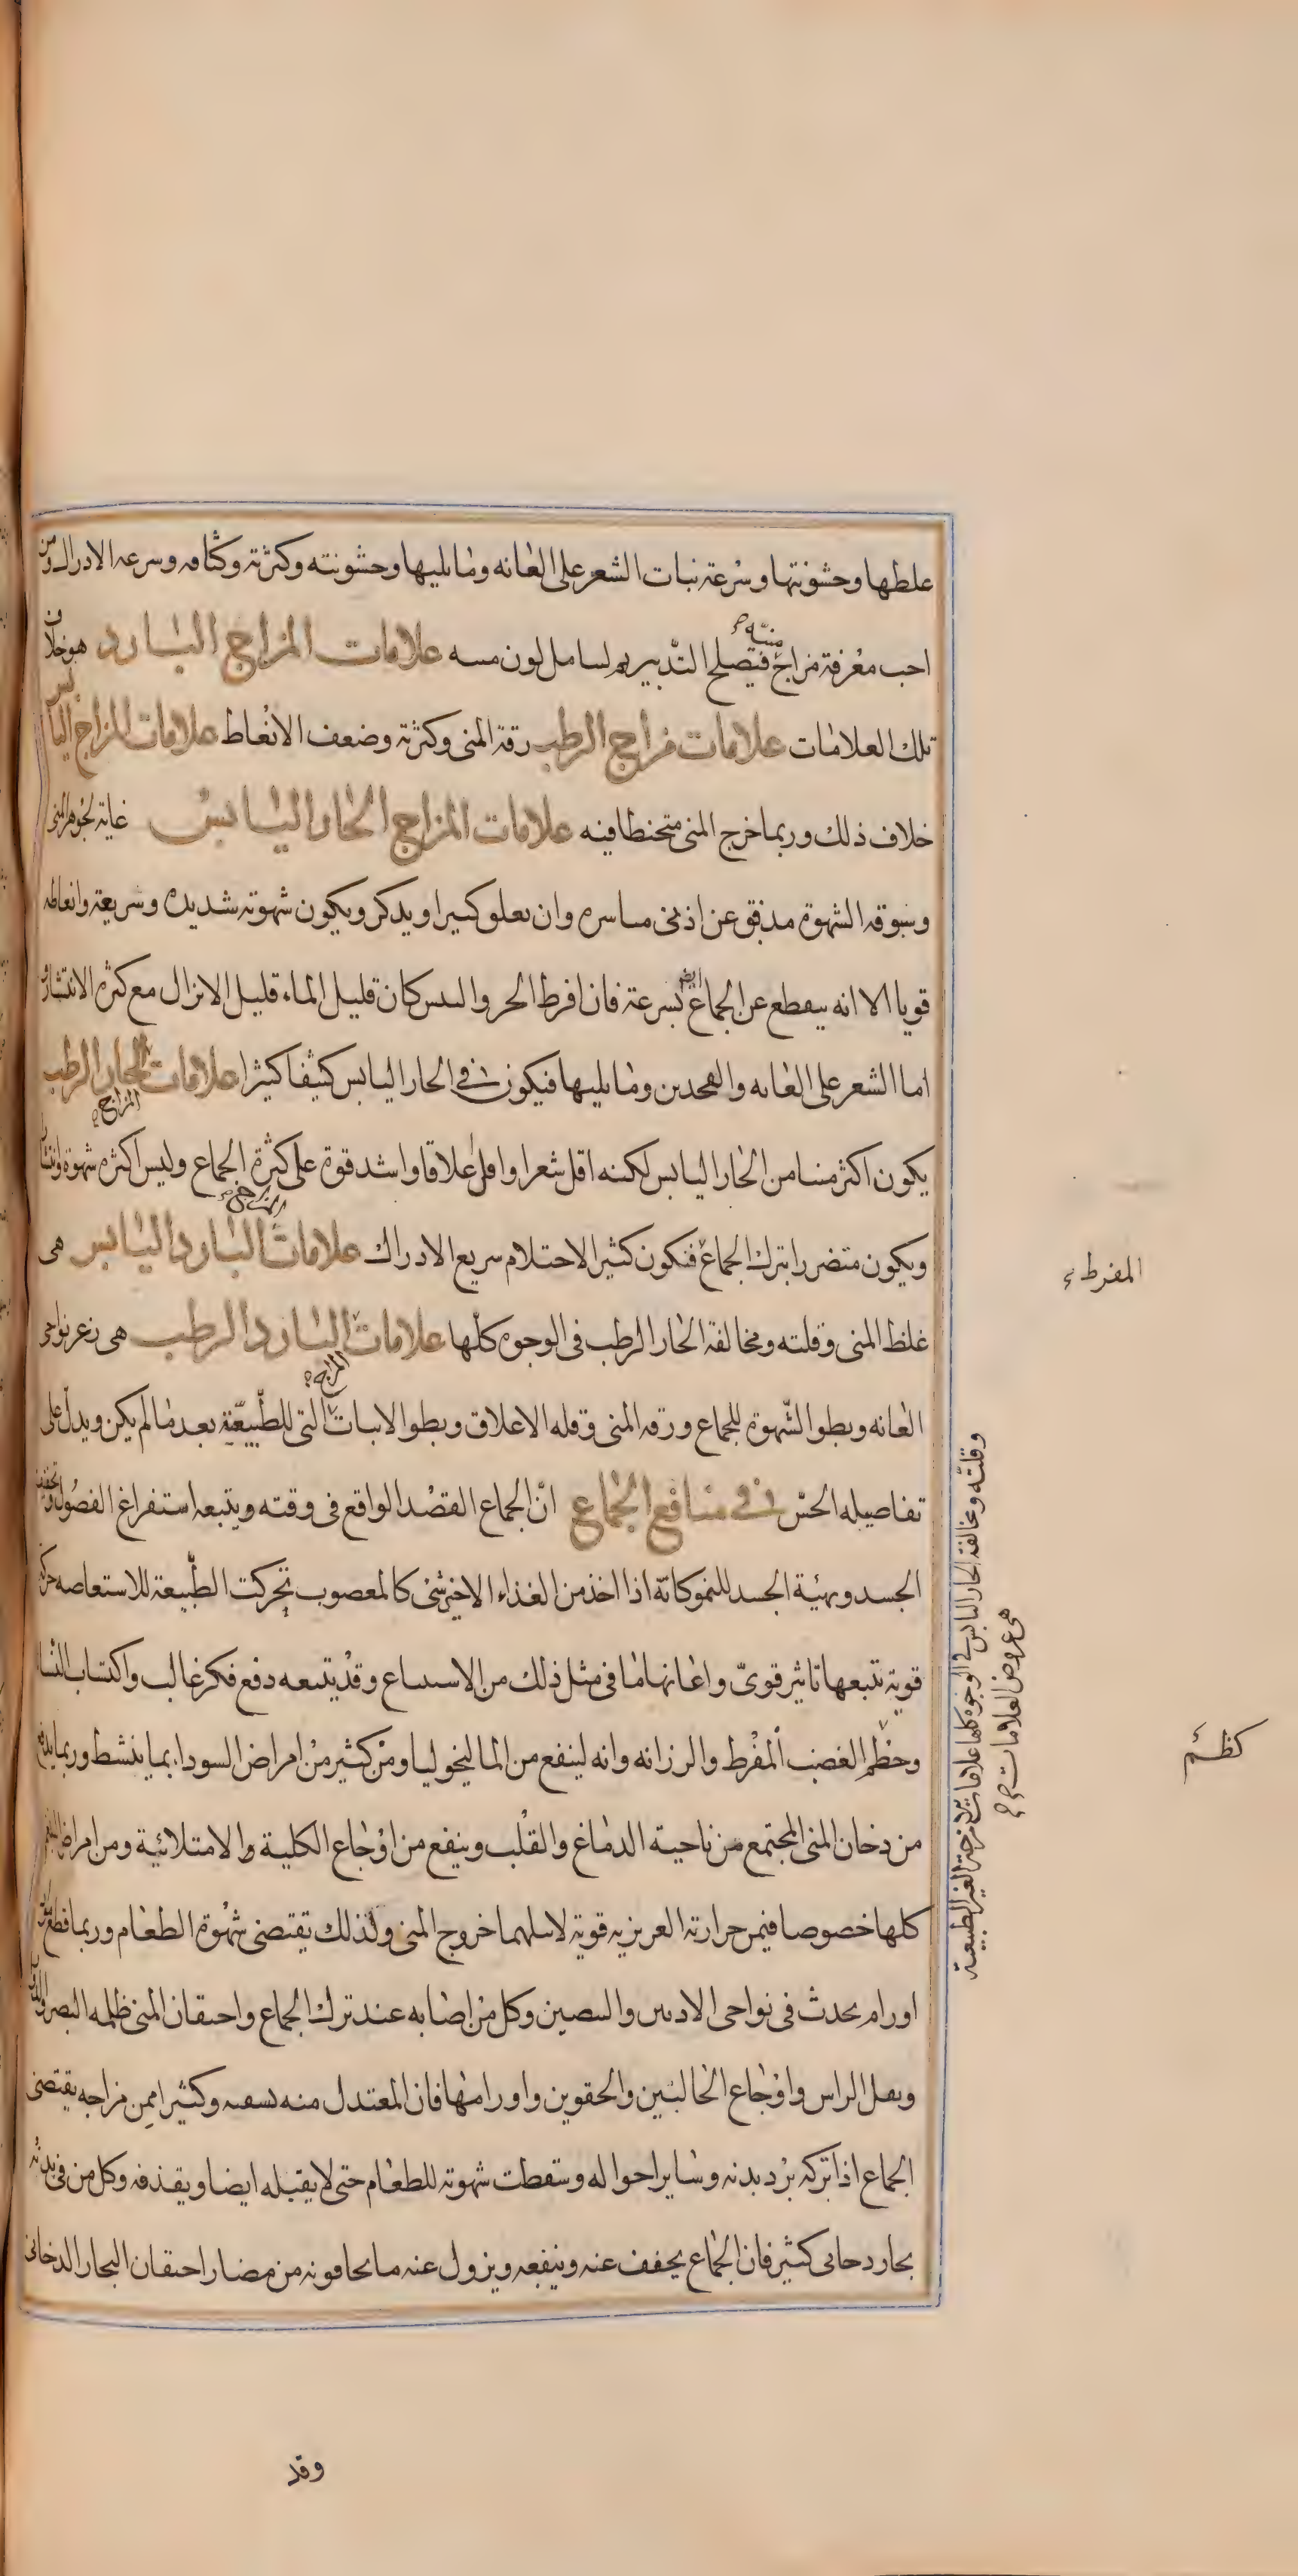 علطها وحشونتها وسرعة نبات الشعر على العانه وما يليها وحشونته وكثرته وكثافه وسرعه الادراك ومن
احب معرفة مزاج منيّه فيصلح التدبير لسامل لون مسه علامات المزاج البارد هو خلاف
تلك العلامات علامات مزاج الرطب رقة المنى وكثرته وضعف الانعاط علامات المزاج اليابس
خلاف ذلك وربما خرج المنى متخنطا فيه علامات المزاج الحار اليابس غاية لجوهر المنى
وسوقه الشهوة مدفق عن اذنى مساسره وان يعلو كسرا ويدكر ويكون شهوته شديده وسريعة وانعاطه
قويا الا انه ينقطع عن الجماع ايضا بسرعة فان افرط الحر والىىس كان قليل الماء قليل الانزال مع كثره الانتشار و
اما الشعر على العانه والفحدين وما يليها فيكون فى الحار اليابس كثيفا كثيرا علامات المزاج الحار الرطب
يكون اكثر منيا من الحار اليابس لكنه اقل شعرا واقل اعلاقا واشد قوة على كثرة الجماع وليس اكثره شهوة وانتشارا
ويكون متضررا بترك الجماع فتكون كثير الاحتلام سريع الادراك علامات المزاج البارد اليابس هى
غلظ المنى وقلته ومخالفة الحار الرطب فى الوجوه كلها علامات المزاج البارد الرطب هى زعر نواحى
العانه وبطو الشهوة للجماع ورقه المنى وقله الاعلاق وبطو الاىبات التى للطبيعة بعد ما لم يكن ويدل على
تفاصيله الحس فى منافع الجماع ان الجماع القصد الواقع فى وقته ويتبعه استفراغ الفصول وتخفيف
الجسد وىهئية الجسد للنمو كانه اذا اخذ من الغذاء الاخير شى كالمعصوب تحركت الطبيعة للاستعاصه حركه
قوية تتبعها تاثير قوى واعانها ما فى مثل ذلك من الاستتباع وقد يتبعه دفع فكر غالب واكتساب النسا
وحظم الغضب المفرط والرزانه وانه لينفع من الماليخوليا ومن كثير من امراض السوداء بما ينشط وربما يدفع
من دخان المنى المجتمع من ناحية الدماغ والقلب وينفع من اوجاع الكلية والامتلائية ومن امراض البلغم
كلها خصوصا فيمن حرارته العريزيه قوية لاىىلهما خروج المنى ولذلك يقتضى شهوة الطعام وربما قطع مواد
اورام يحدث فى نواحى الادىىں والىىصين وكل من اصابه عند ترك الجماع واحتقان المنى ظلمه البصر والدوار
وىقل الراس واوجاع الحالبين والحقوين واورامها فان المعتدل منه ىسفىه وكثيرا ممن مزاجه يقتضى
الجماع اذا تركه برد بدنه وساير احواله وسقطت شهوته للطعام حتى لا يقبله ايضا ويقذفه وكل من فى بدنه
بحار دحانى كثير فان الجماع يخفف عنه وينفعه ويزول عنه ما يحافونه من مضار احتقان البحار الدخانى
وقلته ومخالفة الحار اليابس فى الوجوه كلها علامات المزاج الامزجة الغير الطبيعية
هى عروض العلامات
المفرط
كظم
وقد